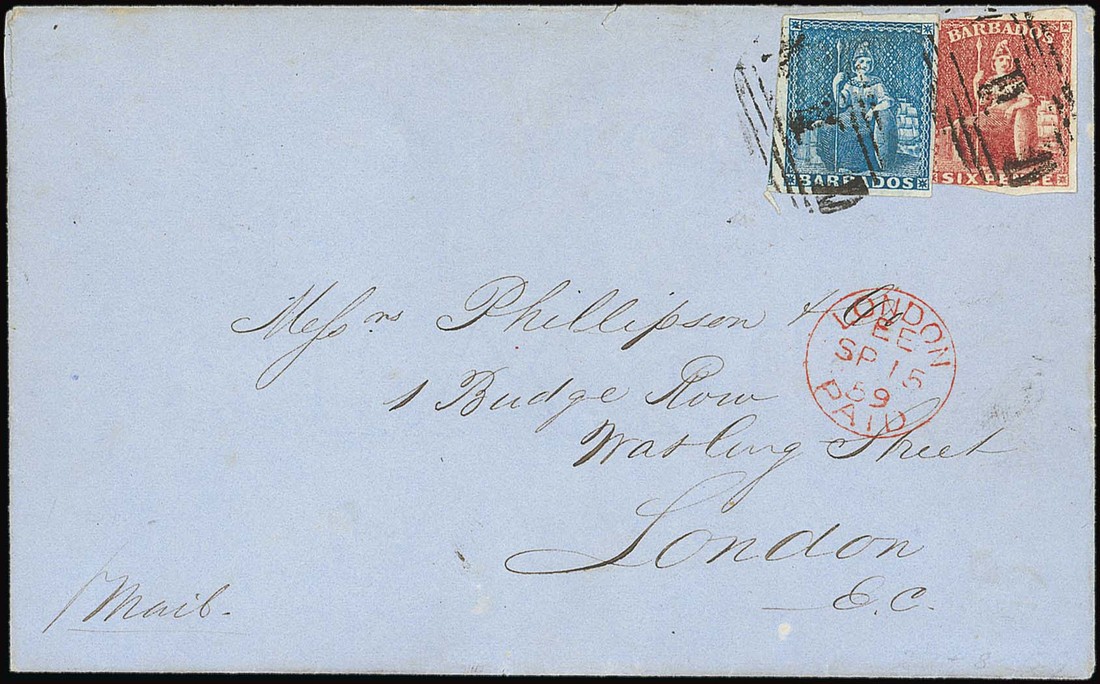 BARBADOS
BARBADOS
SIXPENCE
Messrs Phillipson & Co
1 Budge Row
Watling Street
London
E.C.
Mail.
LONDON
SP 15
59
PAID